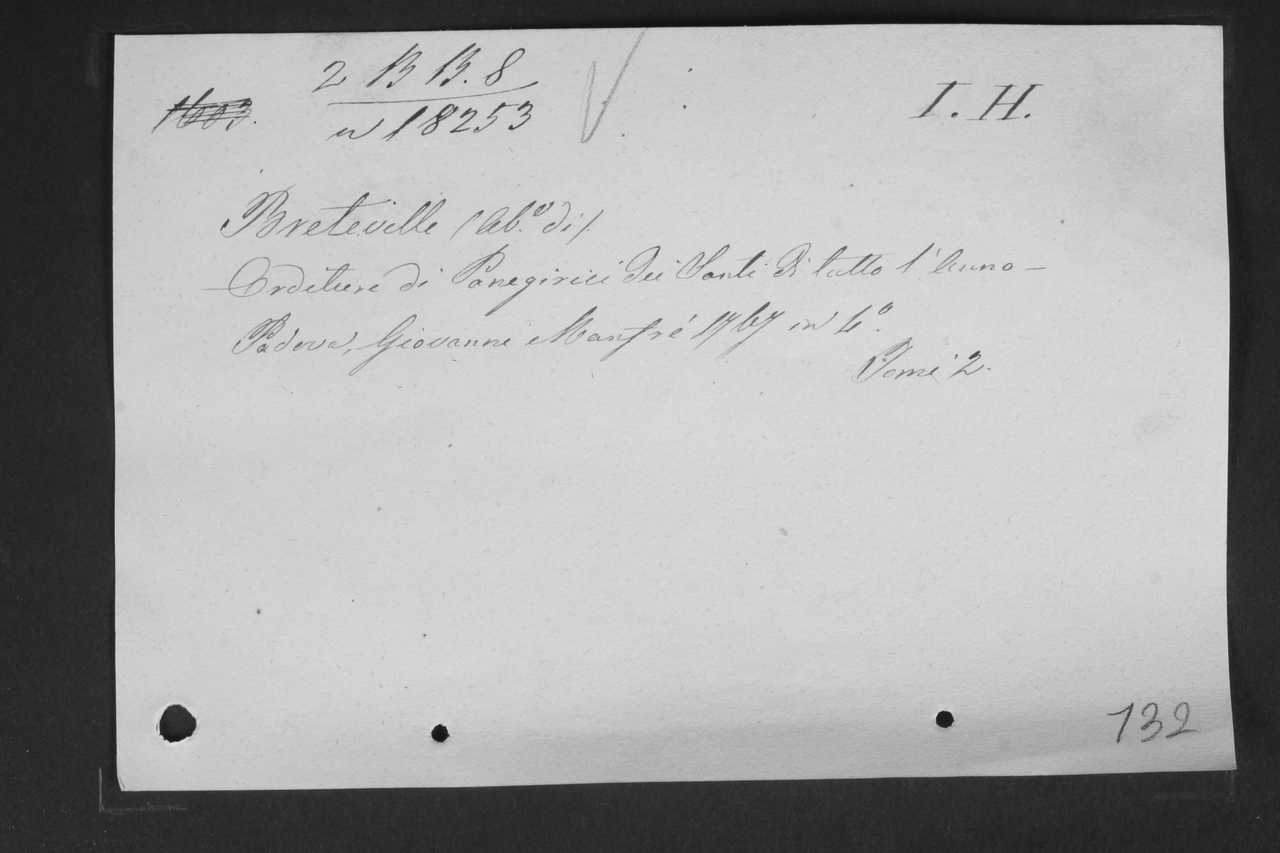 2 B B. 8
1603.
n 18253
I. H.
Breteville (Ab.e di)
Orditure di Panegirici dei Santi di tutto l'Anno –
Padova, Giovanni Manfrè 1767 in 4.o
Tomi 2.
132